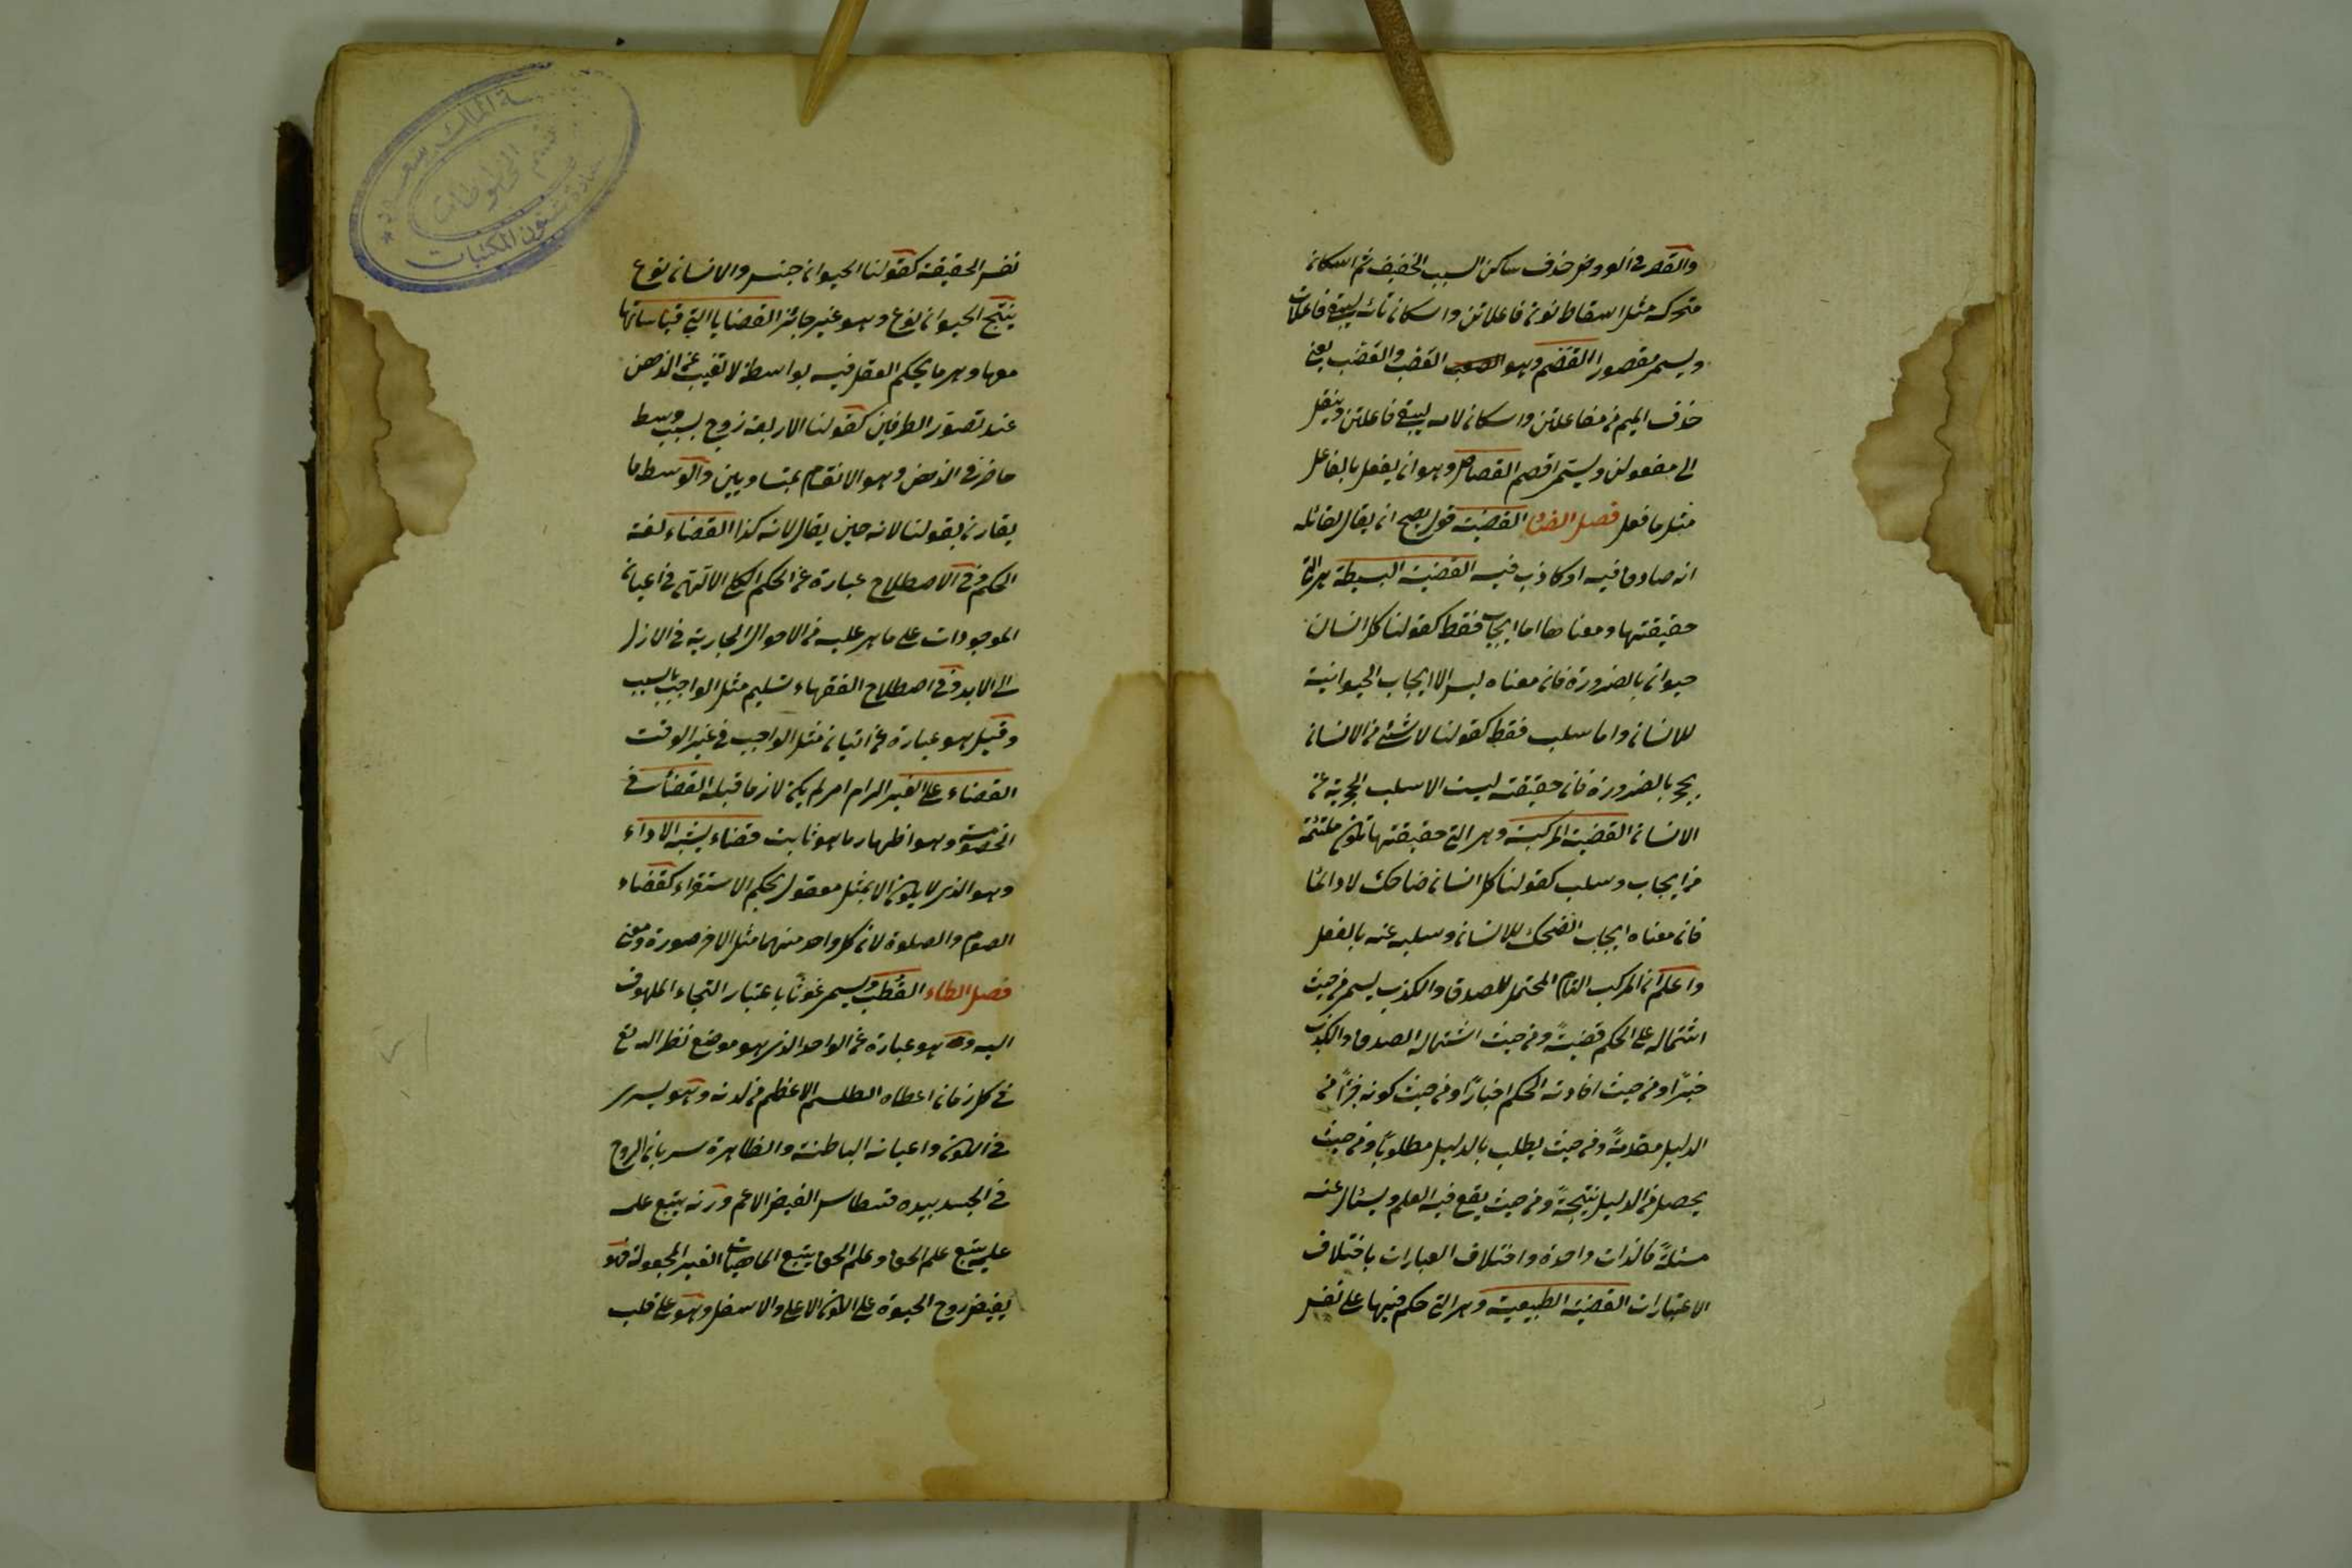 والقصر في العروض حذف ساكن السبب الخفيف ثم اسكان
متحركه مثل اسقاط نون فاعلاتن واسكان تائه ليبقى فاعلات
ويسمى مقصورا القصم وهو العصب والعضب يعنى
حذف الميم من مفاعلتن واسكان لامه ليبقى فاعلتن وينقل
الى مفعولن ويسمى اقصم القصاص وهو ان يفعل بالفاعل
مثل ما فعل فصل الضاد القضية قول يصح ان يقال لقائله
انه صادق فيه او كاذب فيه القضية البسيطة هى التى
حقيقتها ومعناها اما ايجاب فقط كقولنا كل انسان
حيوان بالضرورة فان معناه ليس الا ايجاب الحيوانية
للانسان واما سلب فقط كقولنا لا شئ من الانسان
بحجر بالضرورة فان حقيقته ليست الا سلب الحجرية عن
الانسان القضية المركبة وهى التى حقيقتها تكون ملتئمة
من ايجاب وسلب كقولنا كل انسان ضاحك لا دائما
فان معناه ايجاب الضحك للانسان وسلبه عنه بالفعل
واعلم ان المركب التام المحتمل للصدق والكذب يسمى من حيث
اشتماله على الحكم قضيةً ومن حيث اشتماله الصدق والكذب
خبرًا ومن حيث افادته الحكم اخبارًا ومن حيث كونه جزأً من
الدليل مقدمةً ومن حيث يطلب بالدليل مطلوبًا ومن حيث
يحصل من الدليل نتيجةً ومن حيث يقع فيه العلم ويسئال عنه
مسئلةً فالذات واحدة واختلاف العبارات باختلاف
الاعتبارات القضية الطبيعية وهى التى حكم فيها على نفس
نفس الحقيقة كقولنا الحيوان جنس والانسان نوع
ينتج الحيوان نوع وهو غير جائز القضايا التى قياساتها
معها وهى ما يحكم العقل فيه بواسطة لا تغيب عن الذهن
عند تصور الطرفين كقولنا الاربعة زوج بسبب وسط
حاضر فى الذهن وهو الانقسام بمتساويين والوسط ما
يقارن بقولنا لانه حين يقال لانه كذا القضاء لغة
الحكم وفى الاصطلاح عبارة عن الحكم الكلى الالهى فى اعيان
الموجودات على ما هى عليه من الاحوال الجارية فى الازل
الى الابد وفى اصطلاح الفقهاء تسليم مثل الواجب بالسبب
وقيل هو عبارة عن اتيان مثل الواجب فى غير الوقت
القضاء على الغير الزام امر لم يكن لازما قبله القضاء فى
الخصومة وهو اظهار ما هو ثابت قضاء يشبه الاداء
وهو الذى لا يكون الا بمثل معقول بحكم الاستقراء كقضاء
الصوم والصلوة لان كل واحد منهما مثل الاخر صورة ومعنى
فصل الطاء القطب ويسمى غوثًا باعتبار التجاء الملهوف
اليه وهو عبارة عن الواحد الذى هو موضع نظر الله تع
فى كل زمان اعطاه الطلسم الاعظم من لدنه وهو يسرى
فى الكون واعيانه الباطنة والظاهرة سريان الروح
فى الجسد بيده قسطاس الفيض الاعم وزنه يتبع علمه
علمه يتبع علم الحق وعلم الحق يتبع الماهيات الغير المجعولة فهو
يفيض روح الحيوة على الكون الاعلى والاسفل وهو على قلب
المكتبات
المخطوطات